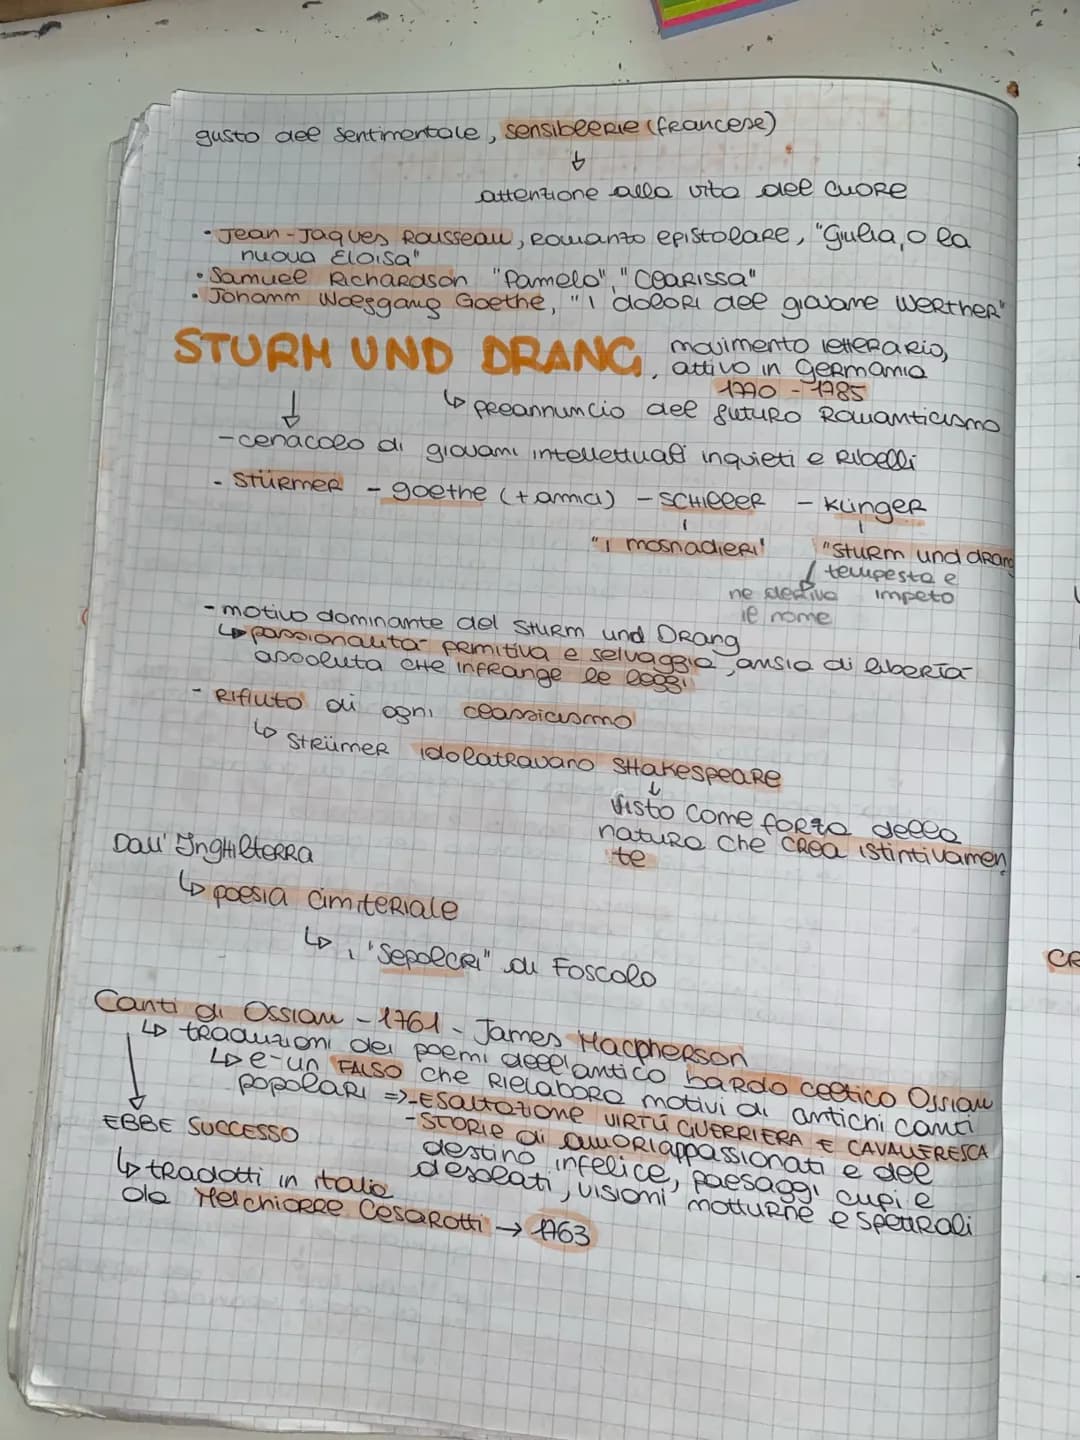 gusto del sentimentale, sensiblerie (francese)
↓
attenzione alla vita del cuore
• Jean-Jaques Rousseau, romanzo epistolare, "Giulia, o la
nuova Eloisa"
• Samuel Richardson "Pamela", "Clarissa"
• Johann Wolfgang Goethe, "I dolori del giovane Werther"
STURM UND DRANG, movimento letterario,
attivo in Germania
1770 - 1785
↳ preannuncio del futuro Romanticismo
- cenacolo di giovani intellettuali inquieti e ribelli
- Stürmer - goethe (+ amici) - SCHILLER - Klinger
"I masnadieri" "Sturm und drang
tempesta e
ne deriva impeto
il nome
- motivo dominante del Sturm und Drang
↳ passionalità primitiva e selvaggia, ansia di libertà
assoluta che infrange le leggi
- Rifiuto di ogni classicismo
↳ Strümer idolatravano Shakespeare
↓
Visto come forza della
natura che crea istintivamen
te
Dall'Inghilterra
↳ poesia cimiteriale
↳ i "Sepolcri" di Foscolo
Canti di Ossian - 1761 - James Macpherson
↳ traduzioni dei poemi dell'antico bardo celtico Ossian
↳ e' un FALSO che rielabora motivi di antichi canti
popolari => - Esaltazione VIRTÚ GUERRIERA E CAVALLERESCA
- STORIE di amori appassionati e del
destino infelice, paesaggi cupi e
desolati, visioni notturne e spettrali
EBBE SUCCESSO
↳ tradotti in italia
da Melchiorre Cesarotti → 1763
CR